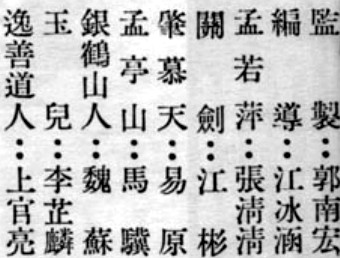 監製：郭南宏
編導：江冰涵
孟若萍：張清清
關劍：江彬
肇慕天：易原
孟亭山：馬驥
銀鶴山人：魏蘇
玉兒：李芷麟
逸善道人：上官亮